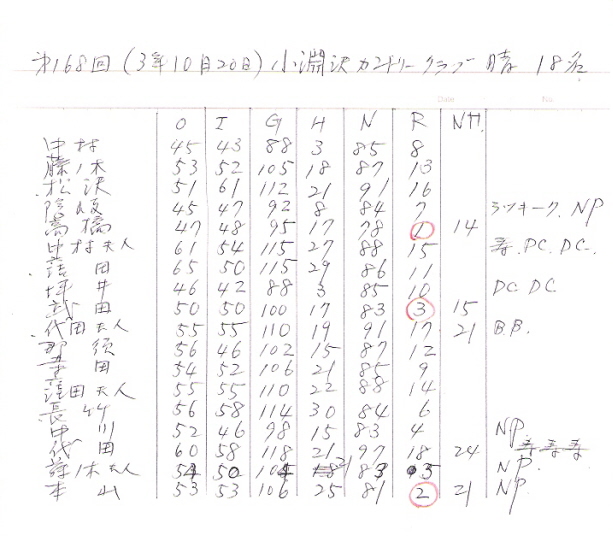 第168回 (3年10月20日) 小淵沢カントリークラブ 晴 18名
Date No
O I G H N R NH.
中村 45 43 88 3 85 8
藤ノ木 53 52 105 18 87 13
松沢 51 61 112 21 91 16
45 47 92 8 84 7 ラッキーク. NP
高橋 47 48 95 17 78 1 14
中村夫人 61 54 115 27 88 15 PC. DC.
田 65 50 115 29 86 11
坪井 46 42 88 3 85 10 DC. DC
武田 50 50 100 17 83 3 15
代田夫人 55 55 110 19 91 17 21 B.B.
那須 56 46 102 15 87 12
田 54 52 106 21 85 9
田夫人 55 55 110 22 88 14
長竹 56 58 114 30 84 6
中川 52 46 98 15 83 4 NP.
代田 60 58 118 21 97 18 24
ノ木夫人 54 50 104 21 83 5 NP.
本山 53 53 106 25 81 2 21 NP